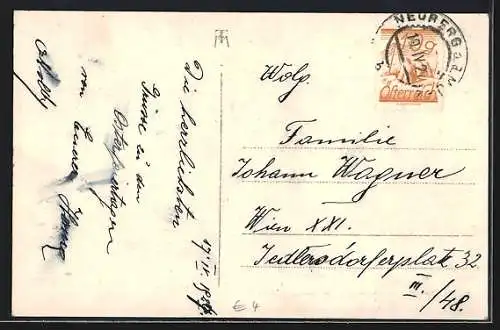 Die herzlichsten
Grüsse zu den
Osterfeiertagen
von Eurer
17/IV 19
NEUBERG a.d.MÜ
Österreich
Wolg.
Familie
Johann Wagner
Wien XXI.
Jedlersdorferplatz 32
III./48.
€ 4